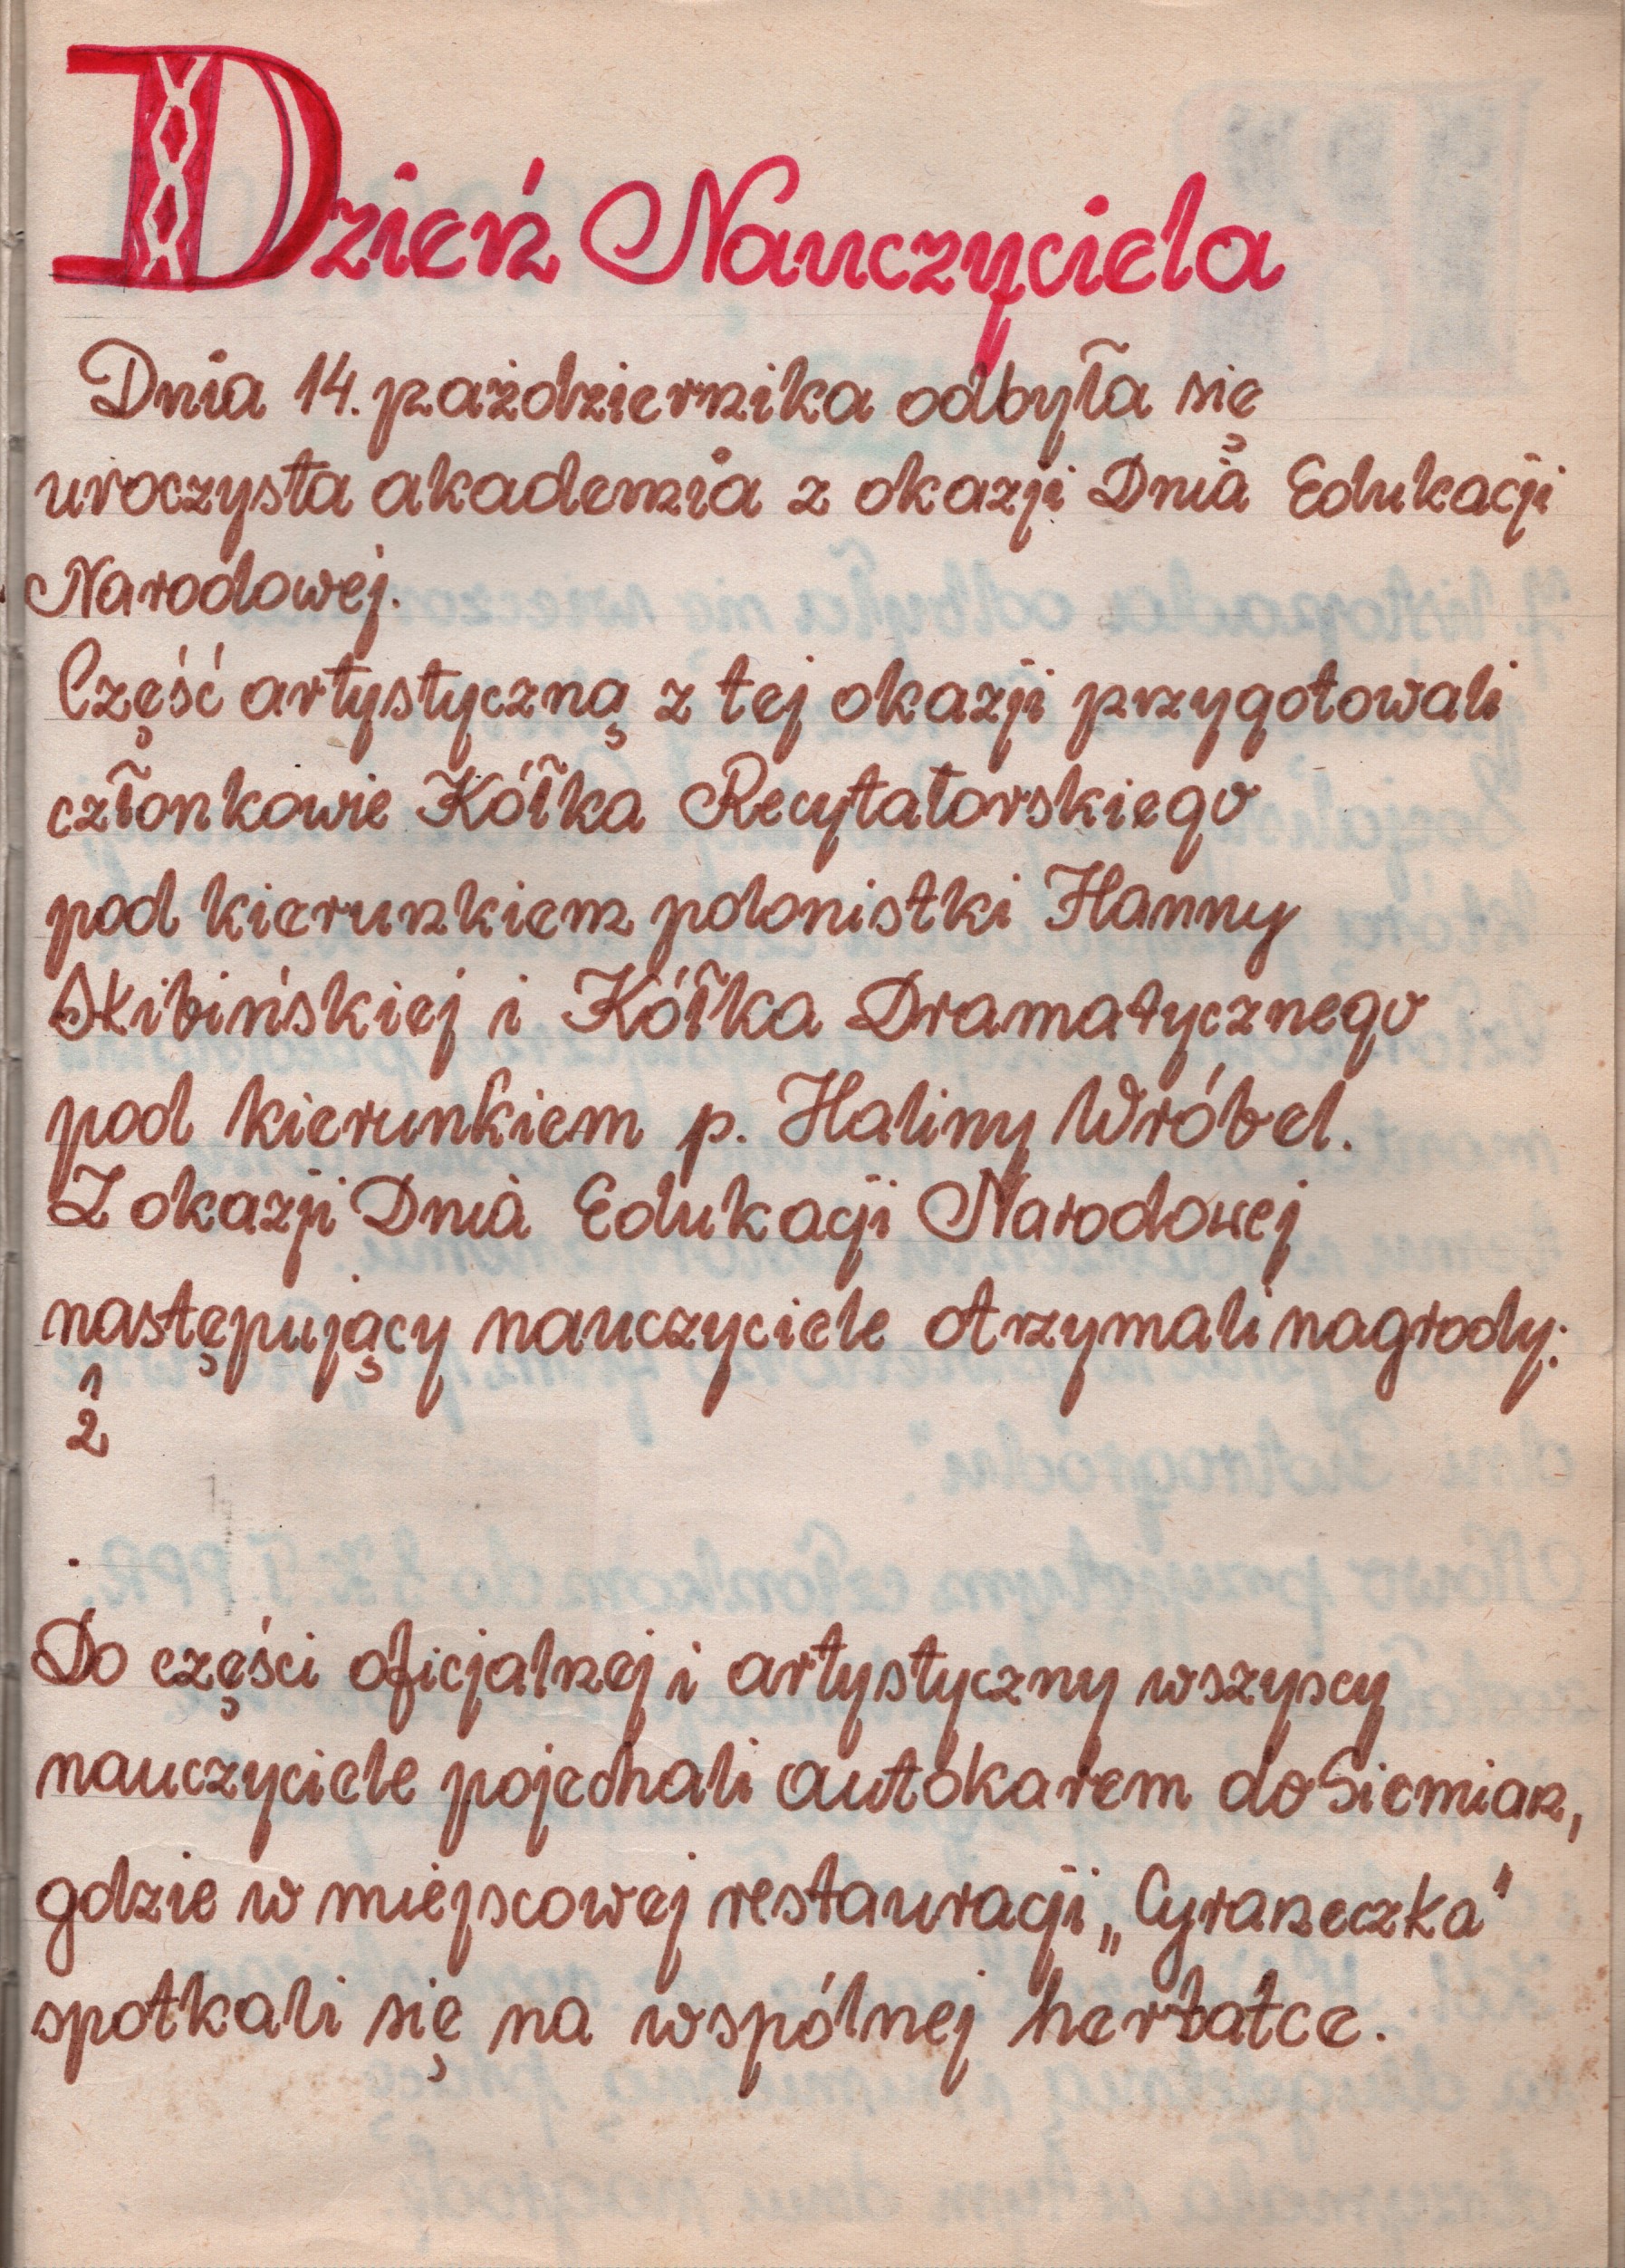 Dzień Nauczyciela
Dnia 14. października odbyła się
uroczysta akademia z okazji Dnia Edukacji
Narodowej.
Część artystyczną z tej okazji przygotowali
członkowie Kółka Recytatorskiego
pod kierunkiem polonistki Hanny
Skibińskiej i Kółka Dramatycznego
pod kierunkiem p. Haliny Wróbel.
Z okazji Dnia Edukacji Narodowej
następujący nauczyciele otrzymali nagrody:
1
2
Do części oficjalnej i artystyczny wszyscy
nauczyciele pojechali autokarem do Siemian,
gdzie w miejscowej restauracji „Cyraneczka"
spotkali się na wspólnej herbatce.